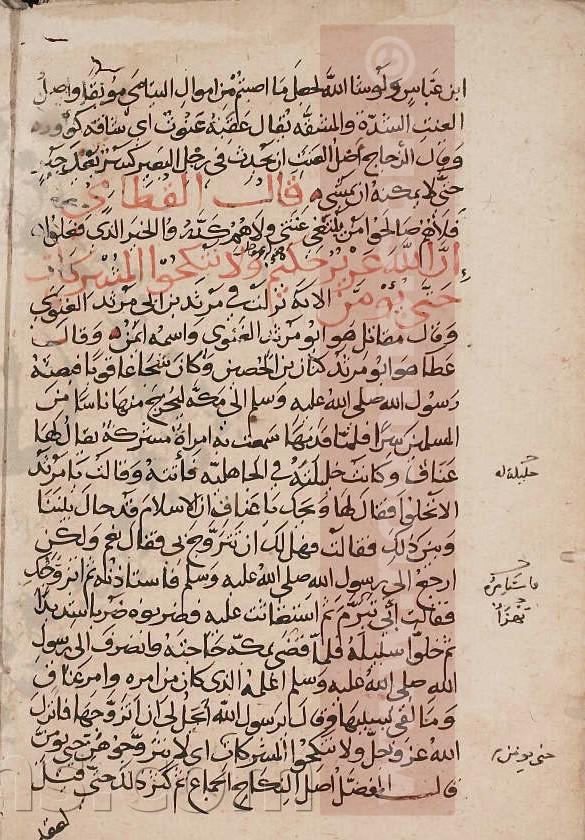 ابن عباس ولو شا الله لجعل ما اصبتم من اموال اليتامى موبقا واصل
العنت الشدة والمشقة يقال عقبة عنوت اى شاقة كوود
وقال الزجاج اصل العنت ان يحدث فى رجل البعير كسر بعد جبر
حتى لا يمكنه ان يمشى قال القطامى
فلا هم صالحوا من يبتغى عنتى ولا هم كدروا الخير الذى فعلوا
إن الله عزيز حكيم قوله تعالى ولا تنكحوا المشركات
حتى يؤمن الاية نزلت فى مرثد بن ابى مرثد الغنوى
وقال مقاتل هو ابو مرثد الغنوى واسمه ايمن وقال
عطا هو ابو مرثد كناز بن الحصين وكان شجاعا قويا فبعثه
رسول الله صلى الله عليه وسلم الى مكة ليخرج منها ناسا من
المسلمين سرا فلما قدمها سمعت به امراة مشركة يقال لها
عناق وكانت خليلته فى الجاهلية فأتته وقالت يا مرثد
الا تخلوا فقال لها ويحك يا عناق ان الاسلام قد حال بيننا
وبين ذلك فقالت فهل لك ان تتزوج بى فقال نعم ولكن
ارجع الى رسول الله صلى الله عليه وسلم فاستاذنه ثم اتزوجك
فقالت أبى تتبرم ثم استغاثت عليه وضربوه ضربا شديدا
ثم خلوا سبيله فلما قضى بمكة حاجته وانصرف الى رسول
الله صلى الله عليه وسلم اعلمه الذى كان من امره وامر عناق
وما لقى بسببها وقال يرسول الله أيحل لى ان اتزوجها فانزل
الله عز وجل ولا تنكحوا المشركات اى لا تتزوجوهن حتى يومن
قال المفضل اصل النكاح الجماع ثم كثر ذلك حتى قيل
للعقد
خليلة له
فاستامره
حتى يومن